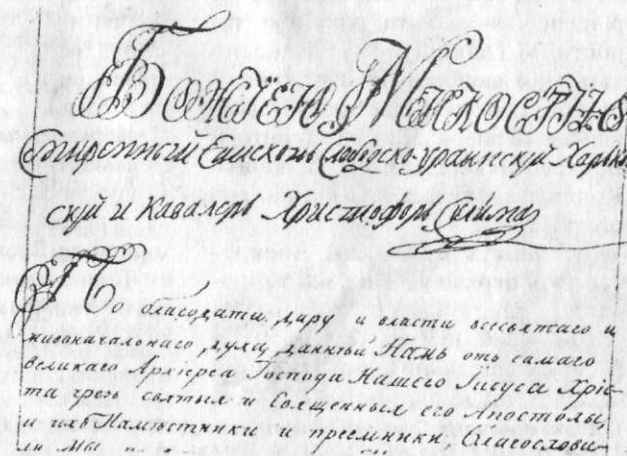 Божією Милостію
Смиренный Епископъ Слободско-Украинскій Харьков
скій и Кавалеръ Христофоръ Сулима
По благодати, дару и власти всесвятаго и
живоначальнаго духа, данныя Намъ отъ самаго
великаго Архіерея Господа Нашего Іисуса Хріс-
та чрезъ святыя и Священныя его Апостолы,
и ихъ Намѣстники и преемники, благослови-
ли Мы